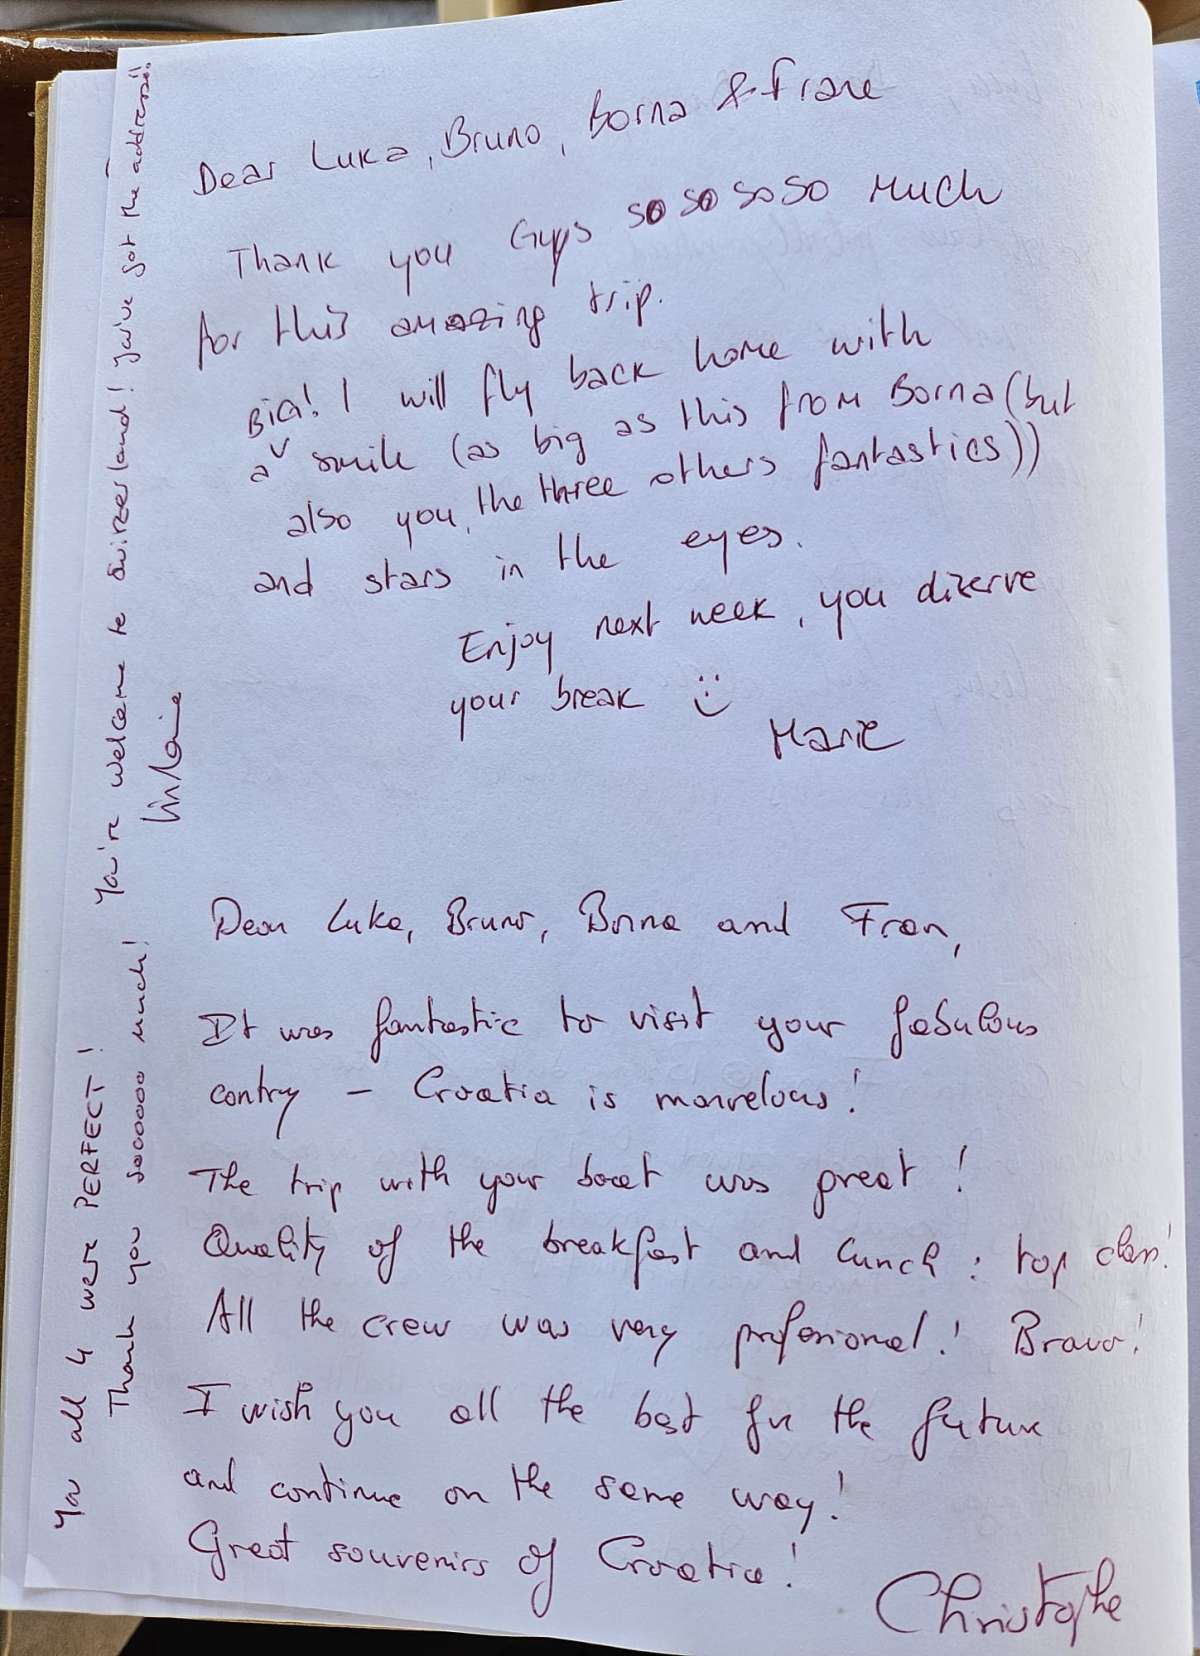 Dear Luka, Bruno, Borna & Frane
Thank you Guys so so so so much
for this amazing trip.
BIG! I will fly back home with
a smile (as big as this from Borna (but
also you, the three others fantastics))
and stars in the eyes.
Enjoy next week, you dizerve
your break :)
Marie
Dear Luka, Bruno, Borna and Fran,
It was fantastic to visit your fabulous
contry – Croatia is marvelous!
The trip with your boat was great!
Quality of the breakfast and lunch : top class!
All the crew was very professional! Bravo!
I wish you all the best for the future
and continue on the same way!
Great souvenirs of Croatia!
Christophe
You all 4 were PERFECT!
Thank you sooooooo much!
You're welcome to Switzerland! You've got the address!!